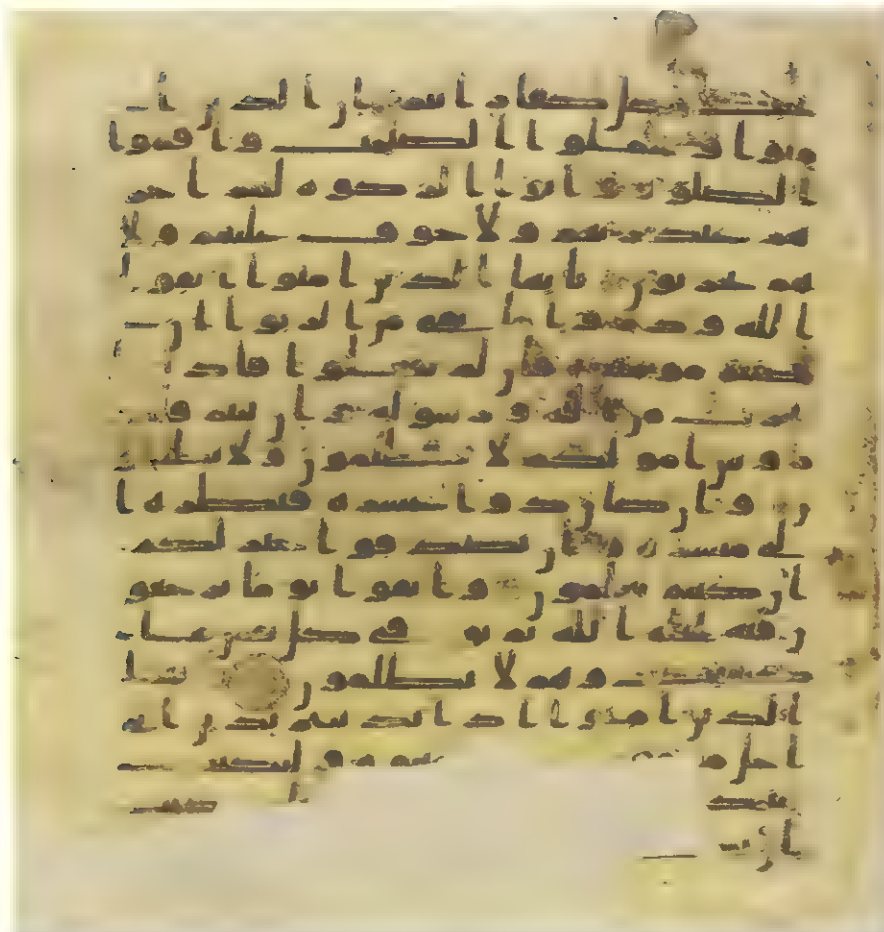 يحب كل كفار اثيم ان الذين ا
منوا وعملوا الصلحت واقموا
الصلوة واتوا الزكوة لهم اجر
هم عند ربهم ولا خوف عليهم ولا
هم يحزنون يايها الذين امنوا اتقوا
الله وذروا ما بقي من الربوا ان
كنتم مومنين فان لم تفعلوا فاذ
نوا بحرب من الله ورسوله وان تبتم فلكم
روس امولكم لا تظلمون ولا تظلمو
ن وان كان ذو عسرة فنظرة ا
لى ميسرة وان تصدقوا خير لكم
ان كنتم تعلمون واتقوا يوما ترجعو
ن فيه الى الله ثم توفى كل نفس ما
كسبت وهم لا يظلمون يايها
الذين امنوا اذا تداينتم بدين الى
اجل وليكتب
بينكم
ان